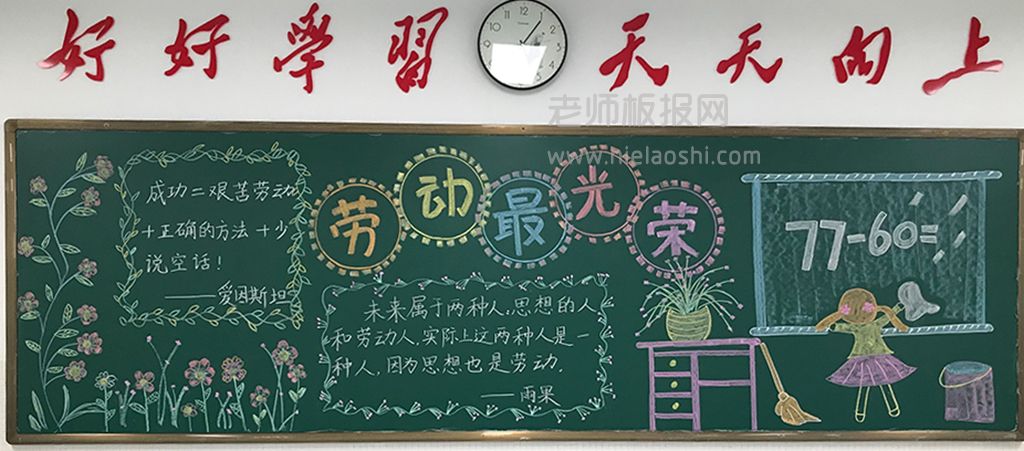 好好學習 天天向上
老师板报网
www.hielaoshi.com
劳动最光荣
成功=艰苦劳动
+正确的方法+少
说空话!
——爱因斯坦
未来属于两种人,思想的人
和劳动人,实际上这两种人是一
种人,因为思想也是劳动.
——雨果
77-60=